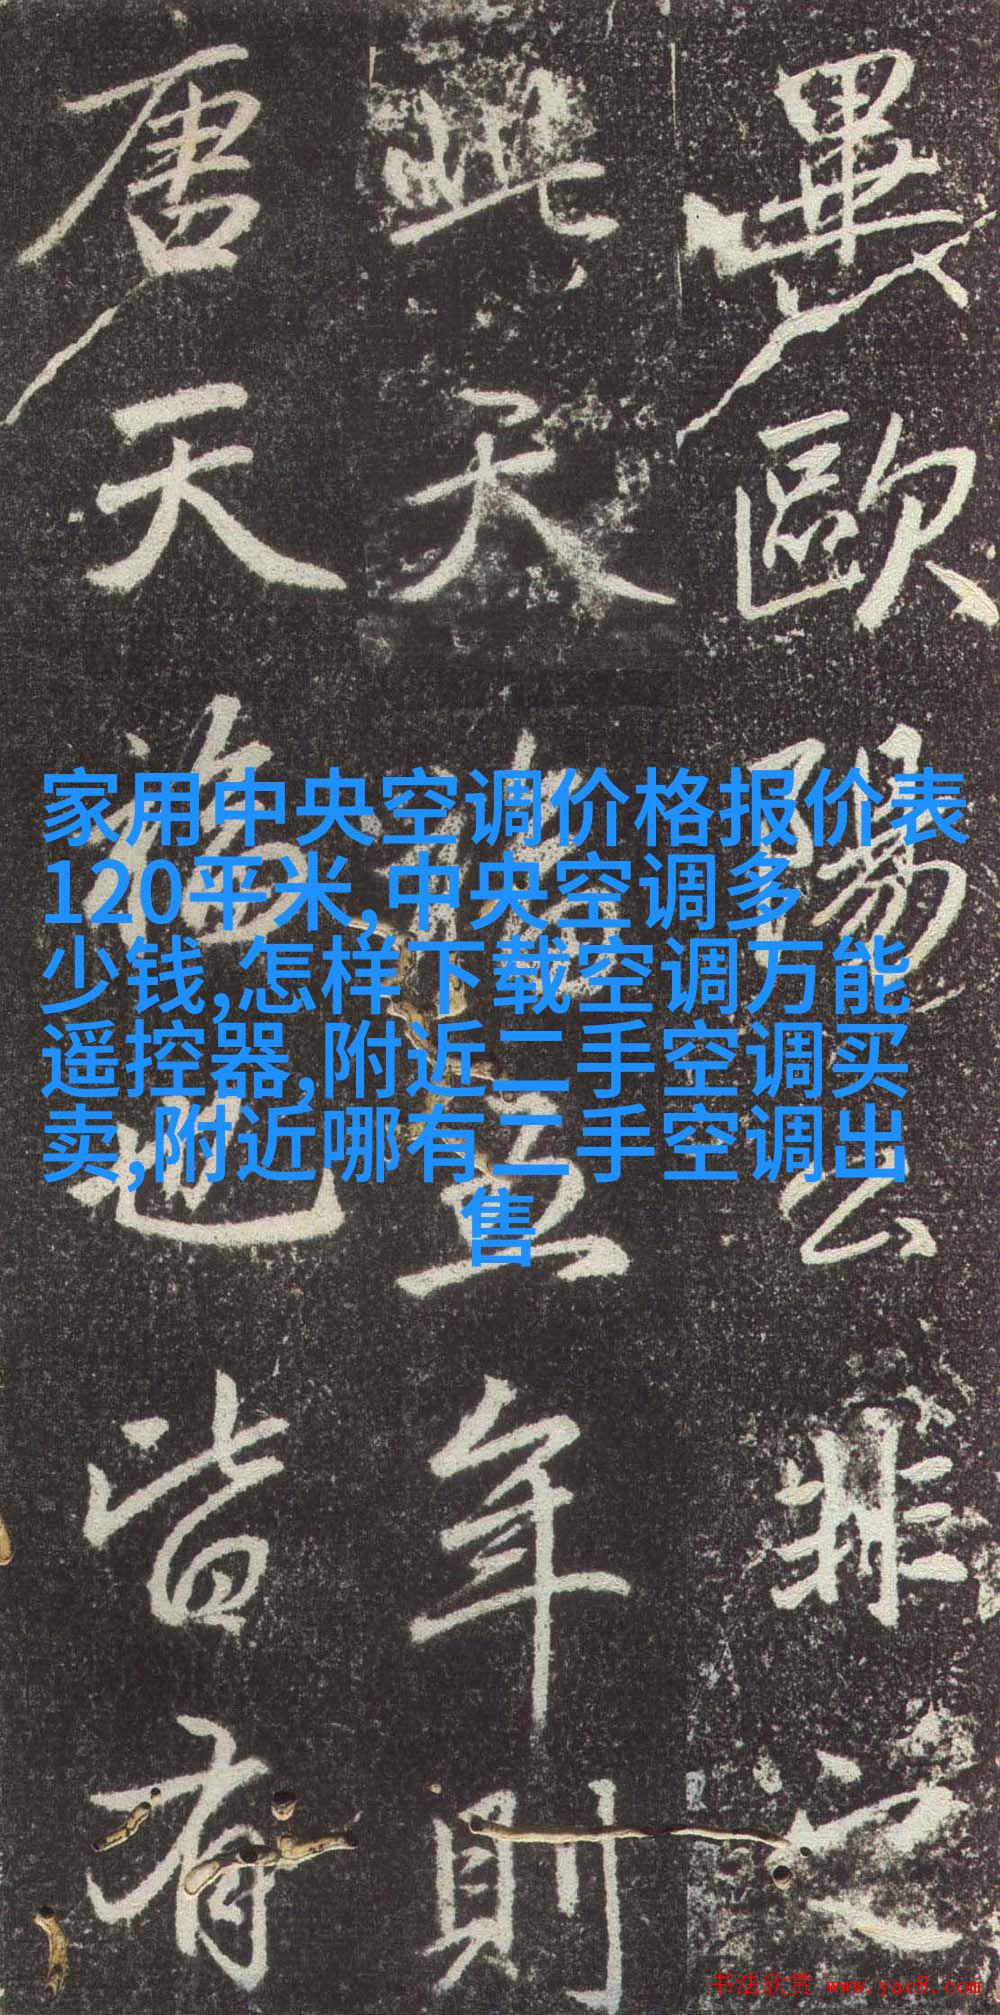 家用中央空调价格报价表
120平米,中央空调多
少钱,怎样下载空调万能
遥控器,附近二手空调买
卖,附近哪有二手空调出
售
畢歐陽公非之
此天五年則
唐天也皆有
书法欣赏 www.yac8.com